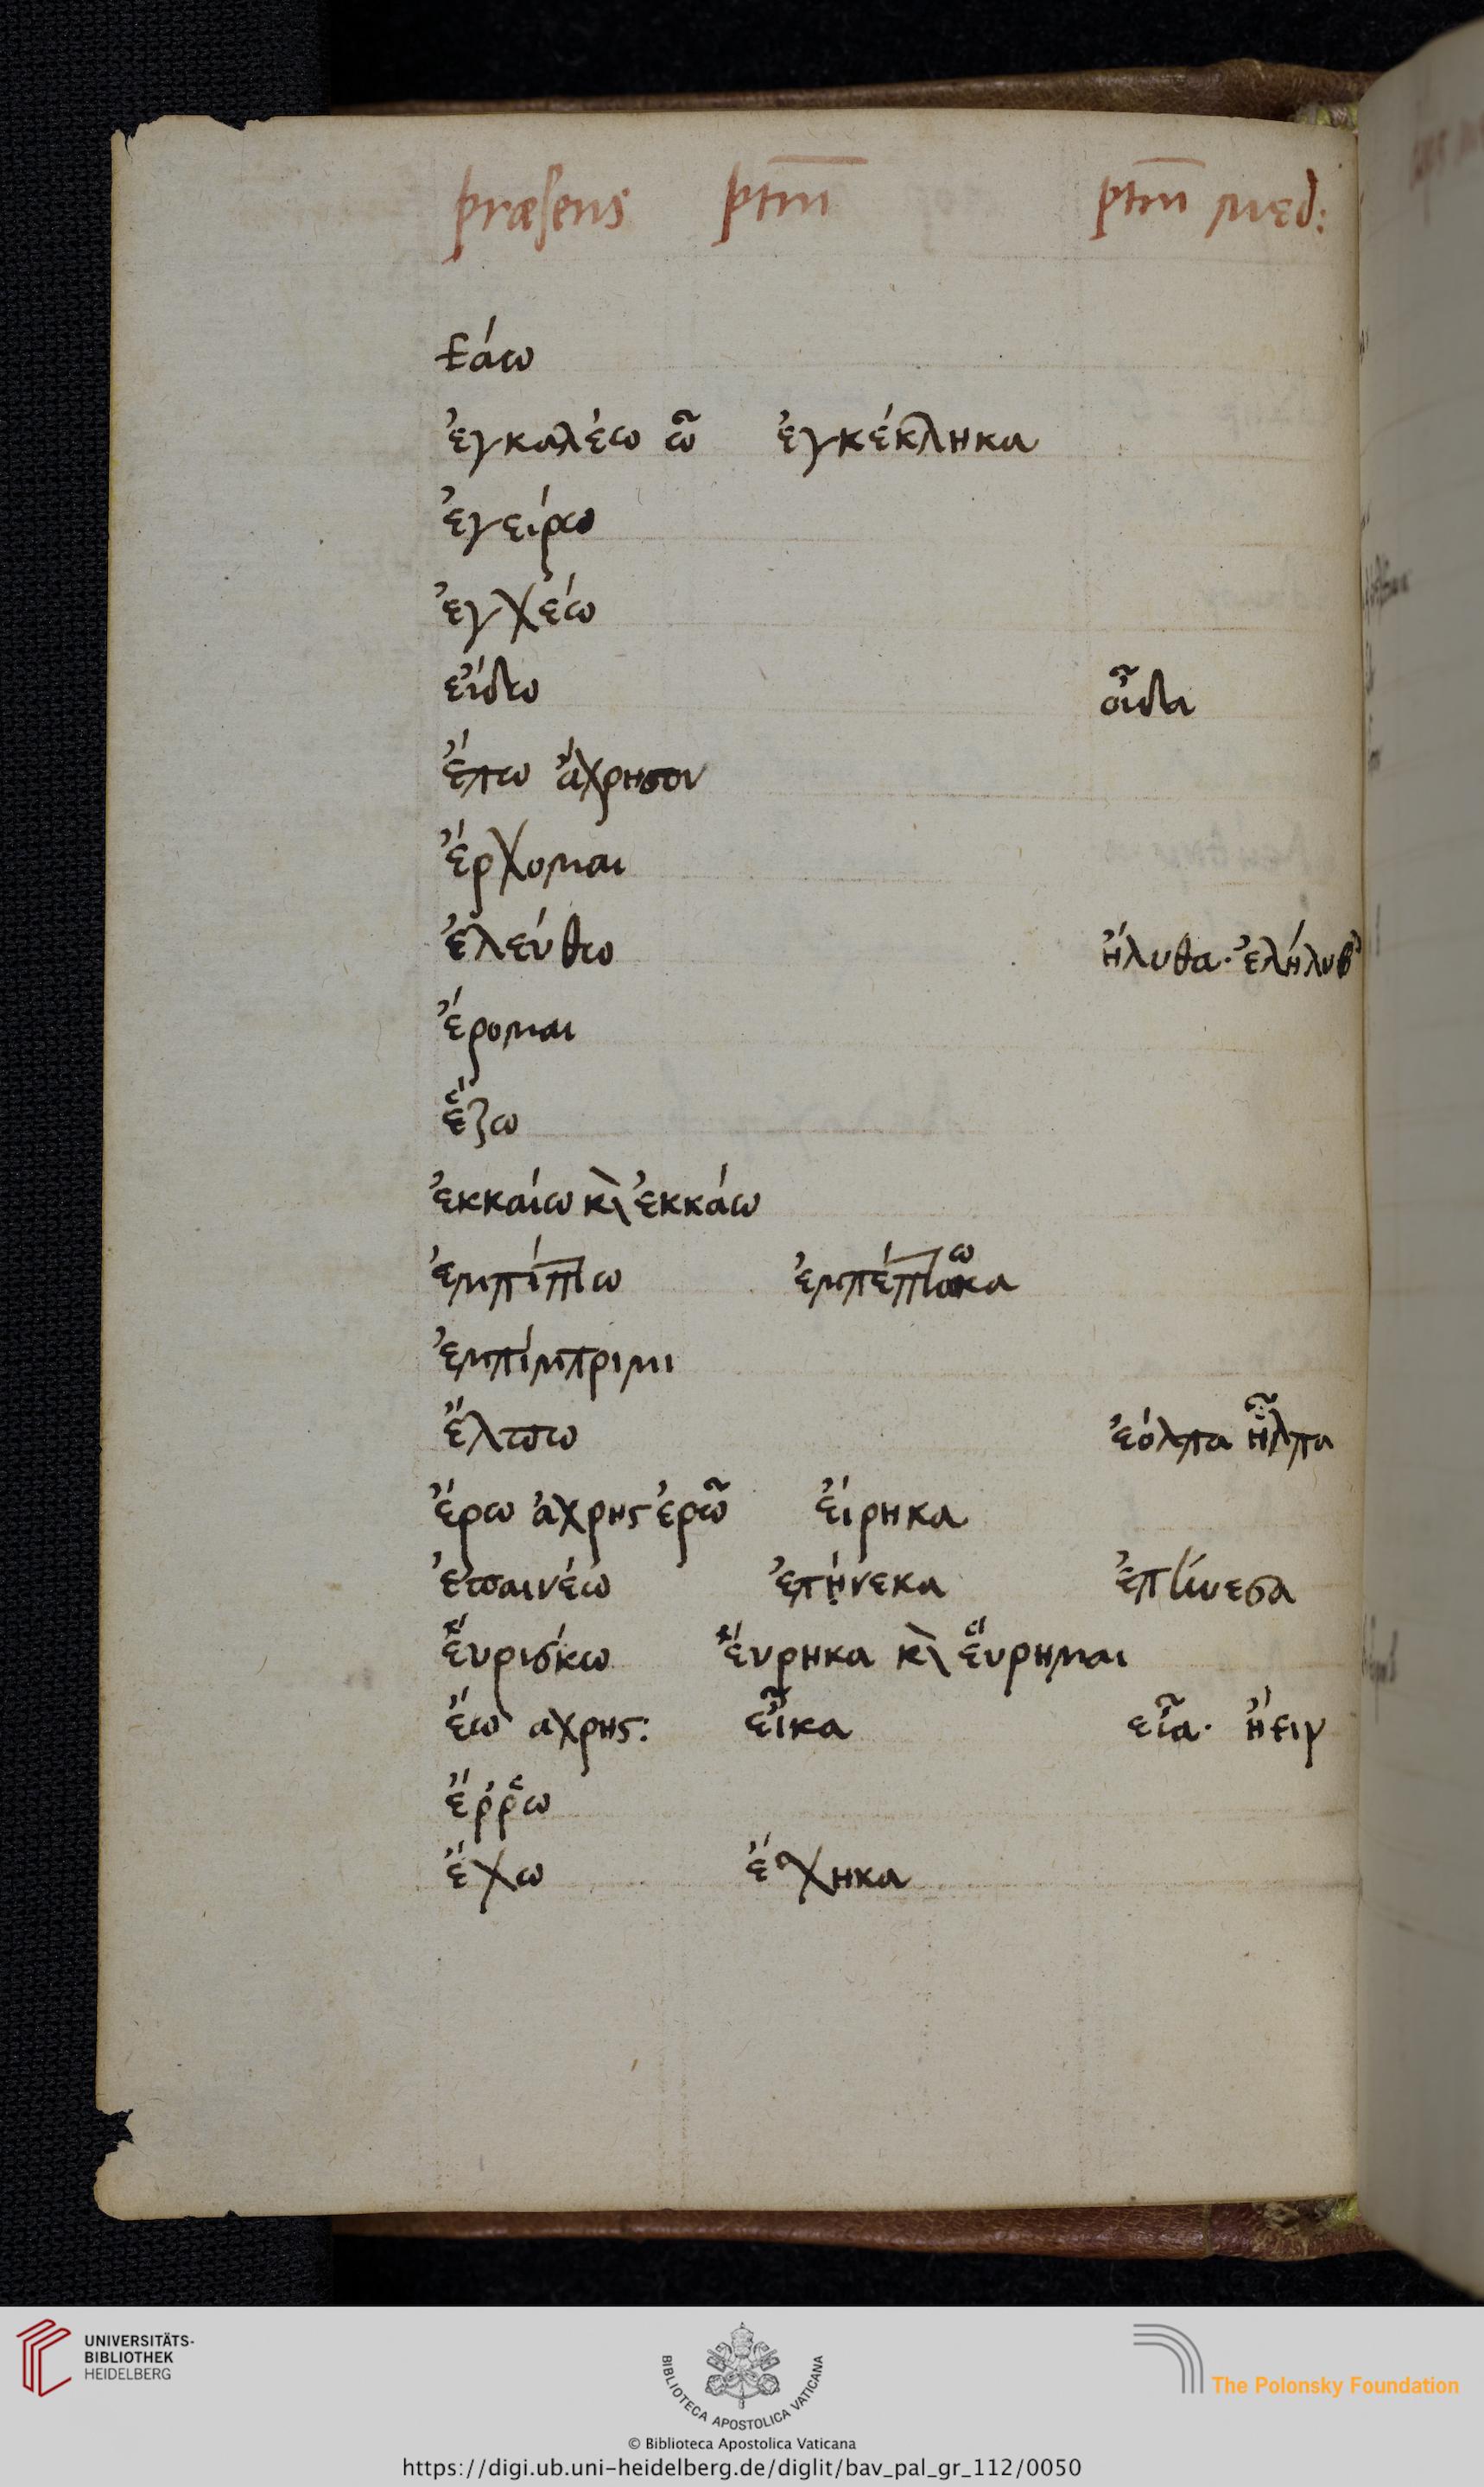 præsens ptm̅ ptm̅ med:
εάω
ἐγκαλέω ῶ ἐγκέκληκα
ἐγείρω
ἐγχέω
εἴδω οἶδα
ἔπω ἄχρηστον
ἔρχομαι
ἐλεύθω ἤλυθα · ἐλήλυθ
ἔρομαι
ἕζω
ἐκκαίω κὶ ἐκκάω
ἐμπίπτω ἐμπέπτωκα
ἐμπίμπριμι
ἔλπω ἐόλπα ἦλπα
ἔρω ἀχρης ἐρῶ εἴρηκα
ἐπαινέω ἐπῄνεκα ἐπήνεσα
εὕρισκω εὕρηκα κὶ εὕρημαι
ἔω αχρης: εἶκα εἶα · ἤειν
ἔῤῥω
ἔχω ἔσχηκα
UNIVERSITÄTS-
BIBLIOTHEK
HEIDELBERG
BIBLIOTECA APOSTOLICA VATICANA
The Polonsky Foundation
© Biblioteca Apostolica Vaticana
https://digi.ub.uni-heidelberg.de/diglit/bav_pal_gr_112/0050